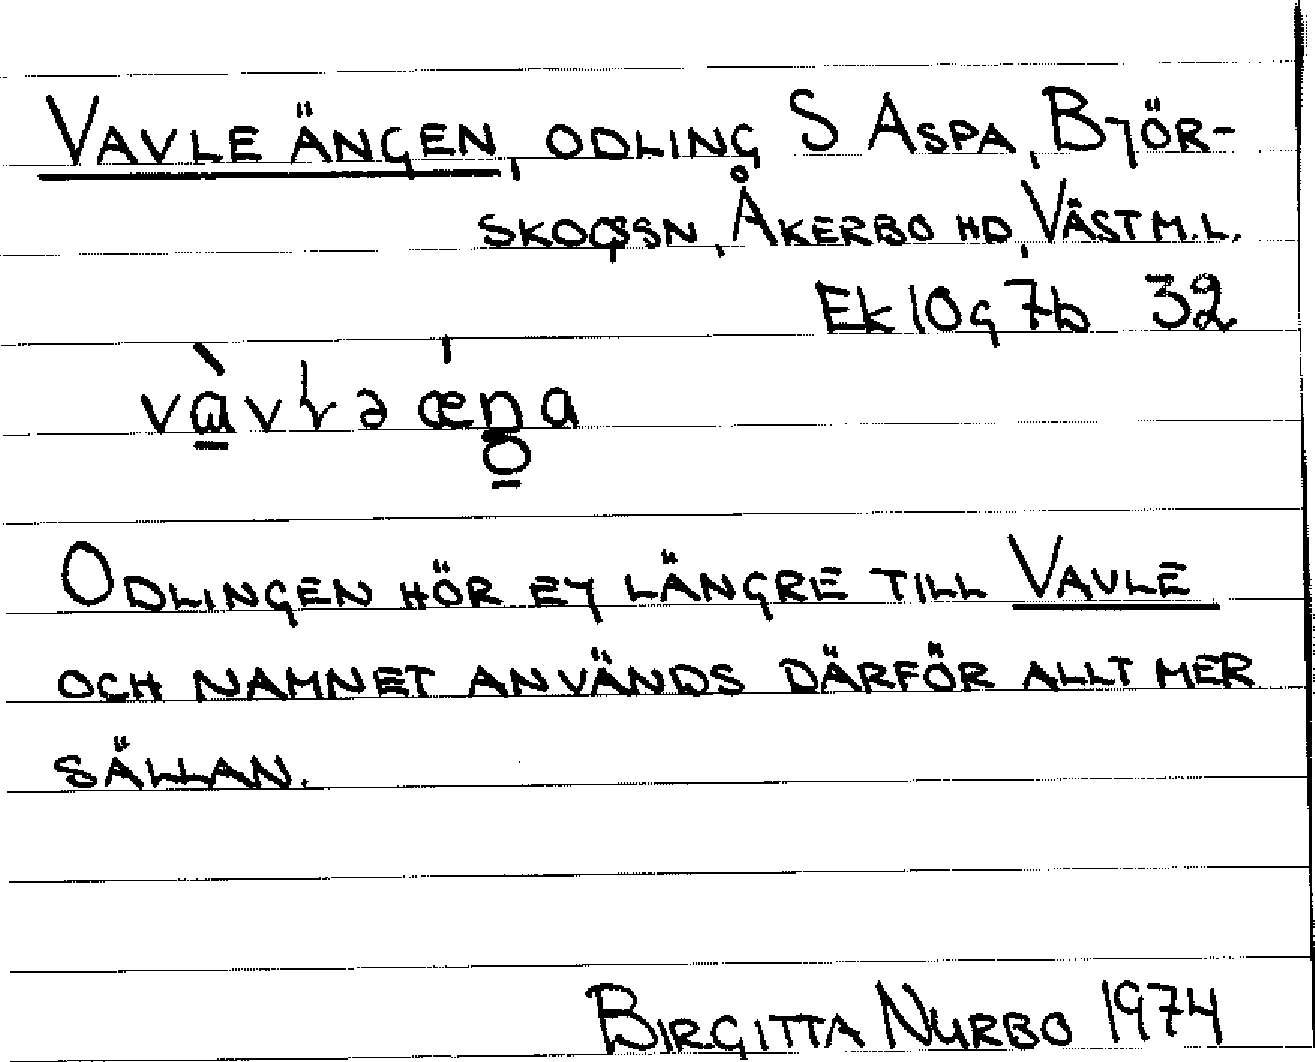 VAVLE ÄNGEN, ODLING S ASPA, BJÖR-
SKOGSSN, ÅKERBO HD, VÄSTM.L.
Ek 10g 7b 32
ODLINGEN HÖR EJ LÄNGRE TILL VAVLE
OCH NAMNET ANVÄNDS DÄRFÖR ALLT MER
SÄLLAN.
BIRGITTA NURBO 1974